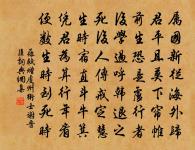 屬國新從海外歸
君平且莫下帘帷
前生恐是盧行者
後學過呼韓退之
死後人傳戒定慧
生時宿直斗牛箕
凭君為算行年看
便數生時到死時
蘇軾贈虔州術士謝晉
臣詞典網集